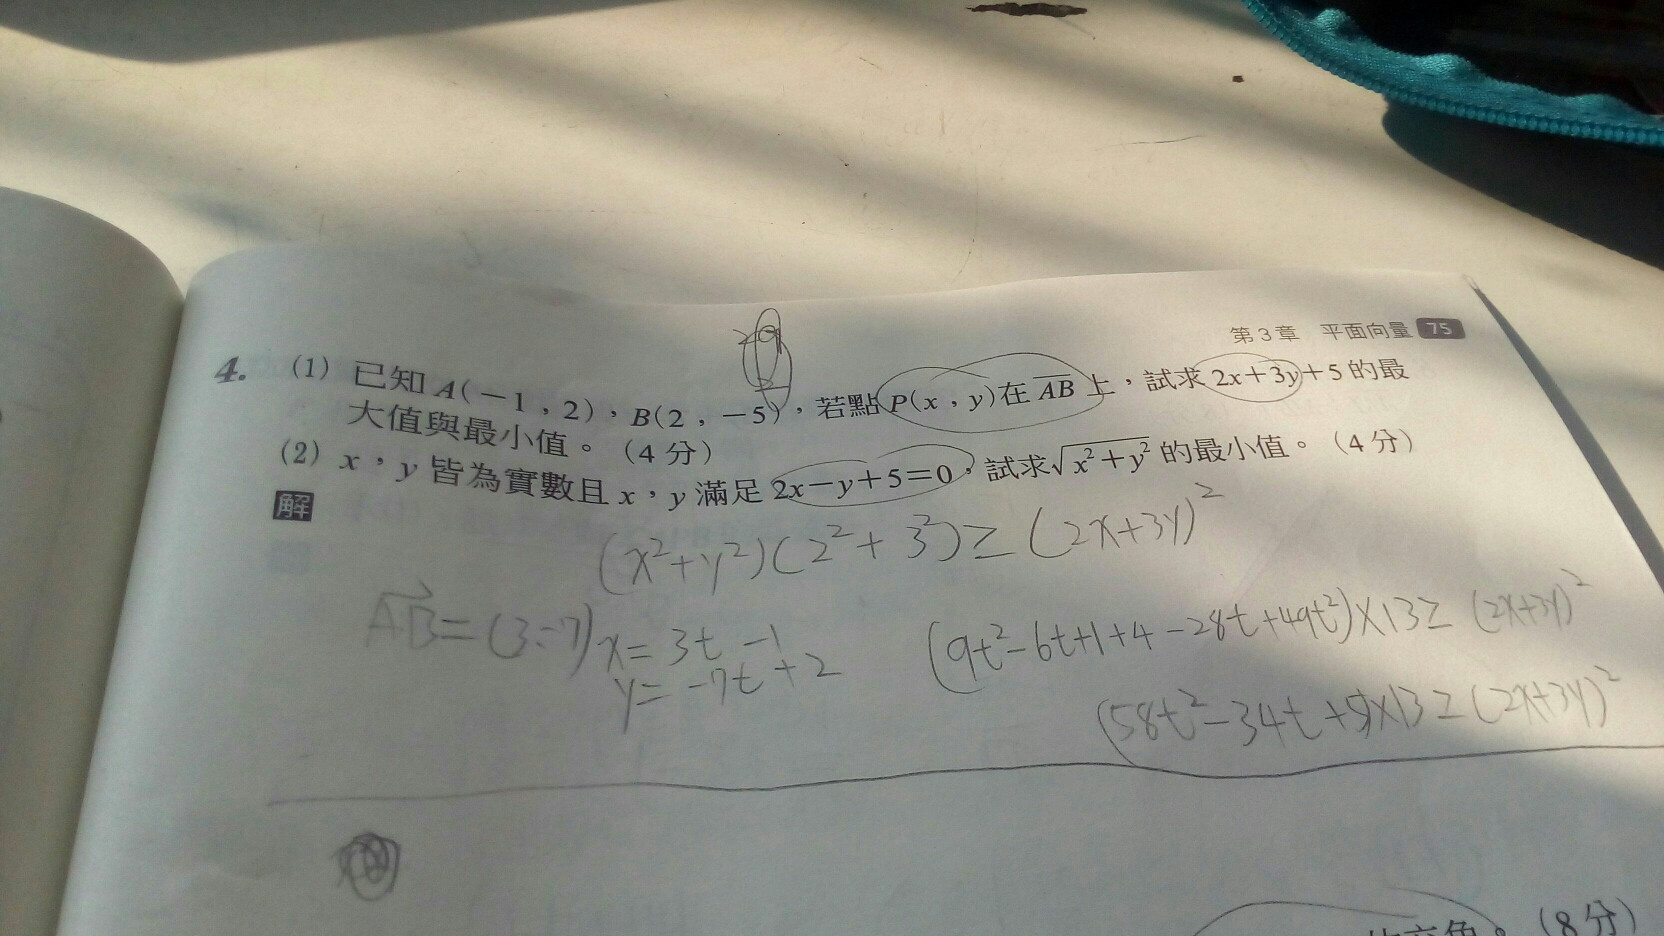 第3章 平面向量 75
4. (1) 已知 A(−1,2),B(2,−5),若點 P(x,y)在 AB 上,試求 2x+3y+5 的最
大值與最小值。(4分)
(2) x,y 皆為實數且 x,y 滿足 2x−y+5=0,試求√(x²+y²) 的最小值。(4分)
解
(x²+y²)(2²+3²)≥(2x+3y)²
AB=(3,-7) x=3t-1
y=-7t+2
(9t²-6t+1+4-28t+49t²)×13≥(2x+3y)²
(58t²-34t+5)×13≥(2x+3y)²
夾角。(8分)